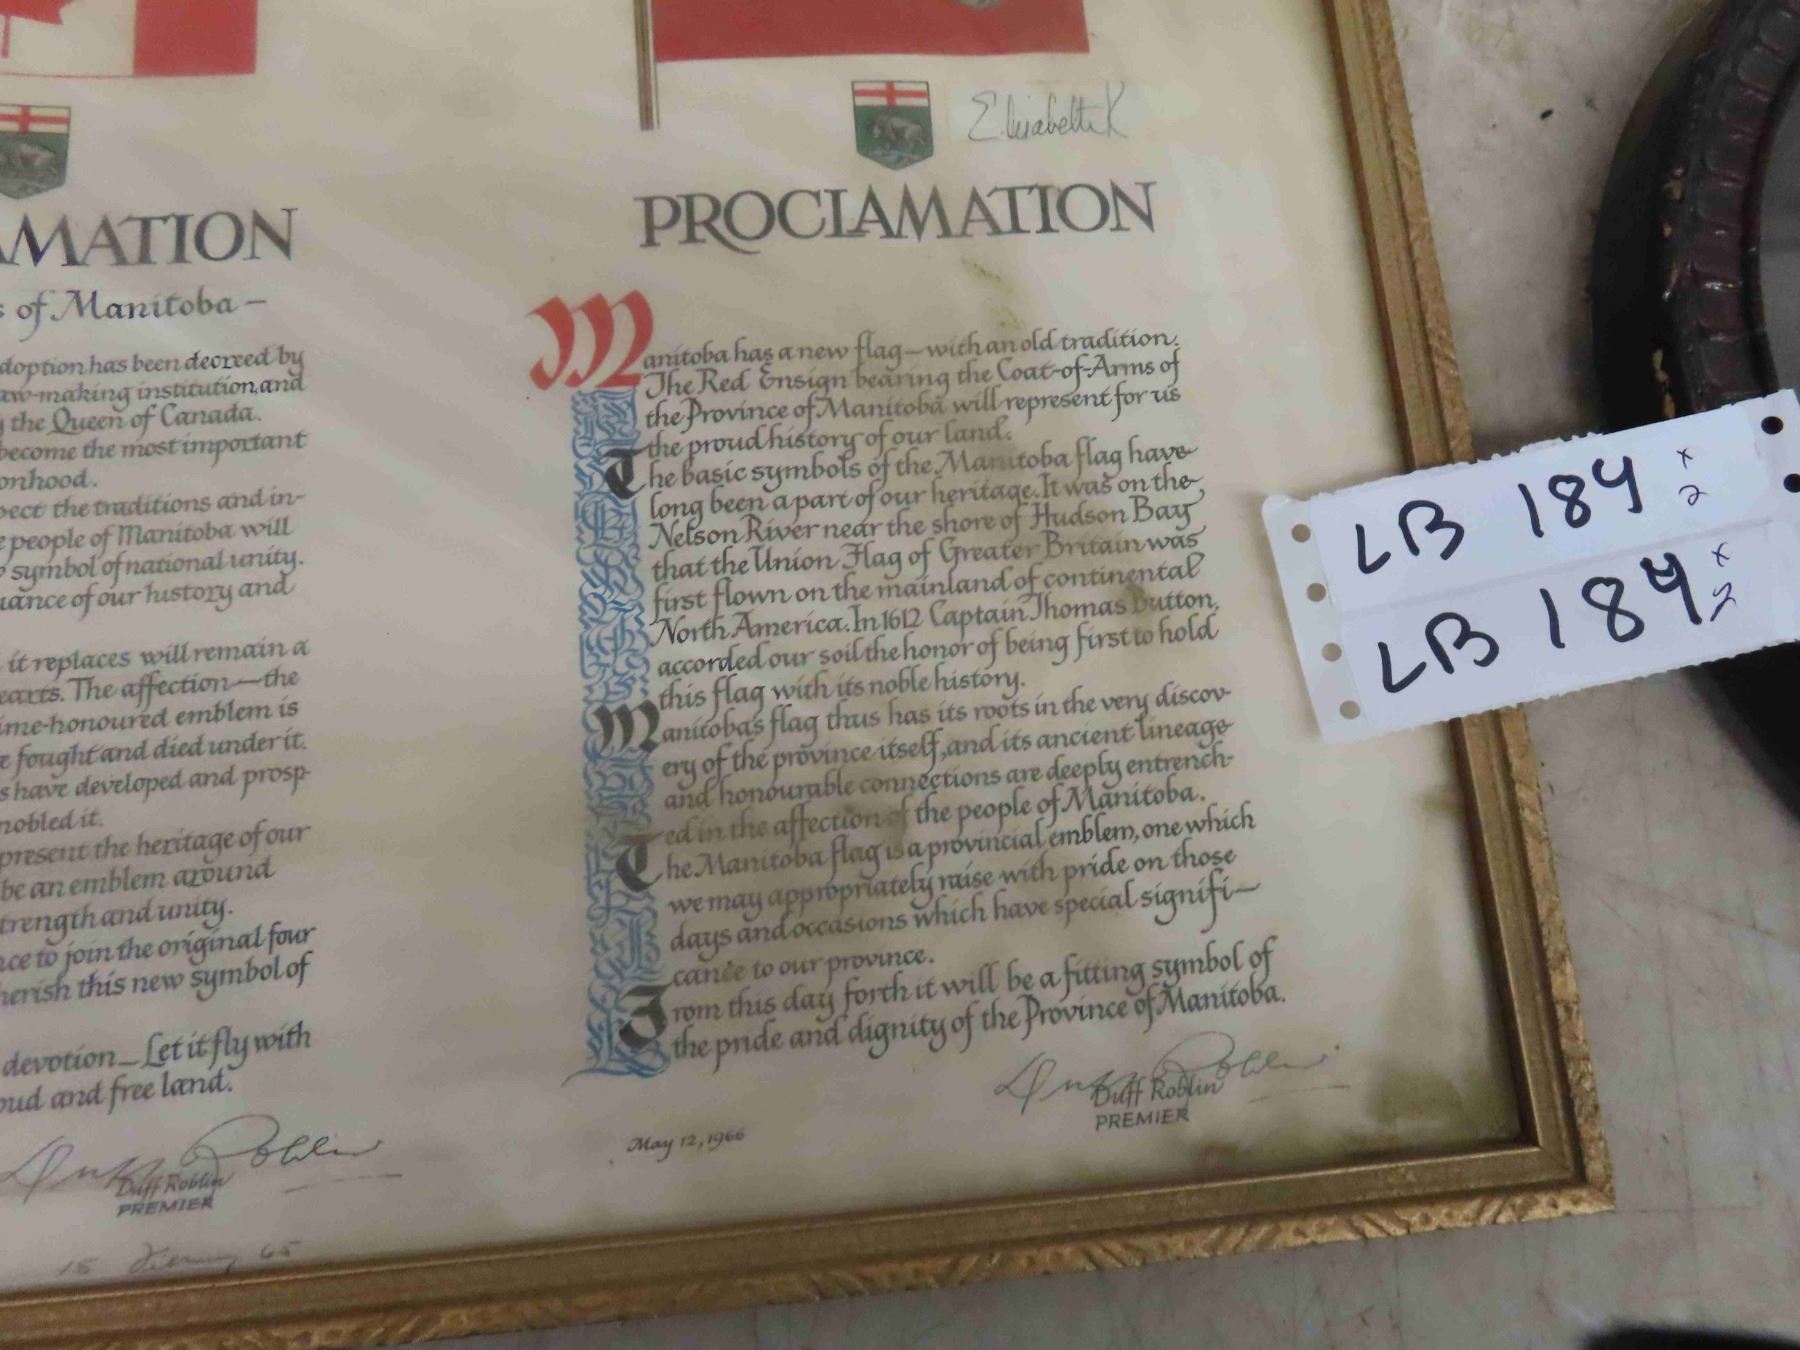 AMATION
s of Manitoba —
doption has been decreed by
aw-making institution, and
y the Queen of Canada.
become the most important
onhood.
pect the traditions and in-
e people of Manitoba will
symbol of national unity.
uance of our history and
it replaces will remain a
earts. The affection — the
ime-honoured emblem is
e fought and died under it.
s have developed and prosp-
nobled it.
present the heritage of our
be an emblem around
trength and unity.
nce to join the original four
herish this new symbol of
devotion — Let it fly with
oud and free land.
Duff Roblin
Duff Roblin
PREMIER
15 65
Elizabeth R
PROCLAMATION
Manitoba has a new flag — with an old tradition.
The Red Ensign bearing the Coat-of-Arms of
the Province of Manitoba will represent for us
the proud history of our land.
The basic symbols of the Manitoba flag have
long been a part of our heritage. It was on the
Nelson River near the shore of Hudson Bay
that the Union Flag of Greater Britain was
first flown on the mainland of continental
North America. In 1612 Captain Thomas Button,
accorded our soil the honor of being first to hold
this flag with its noble history.
Manitoba's flag thus has its roots in the very discov-
ery of the province itself, and its ancient lineage
and honourable connections are deeply entrench-
ed in the affection of the people of Manitoba.
The Manitoba flag is a provincial emblem, one which
we may appropriately raise with pride on those
days and occasions which have special signifi-
cance to our province.
From this day forth it will be a fitting symbol of
the pride and dignity of the Province of Manitoba.
Duff Roblin
Duff Roblin
PREMIER
May 12, 1966
LB 184 x 2
LB 184 x 2